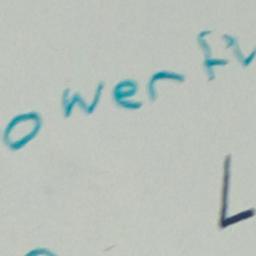 owerfu
L